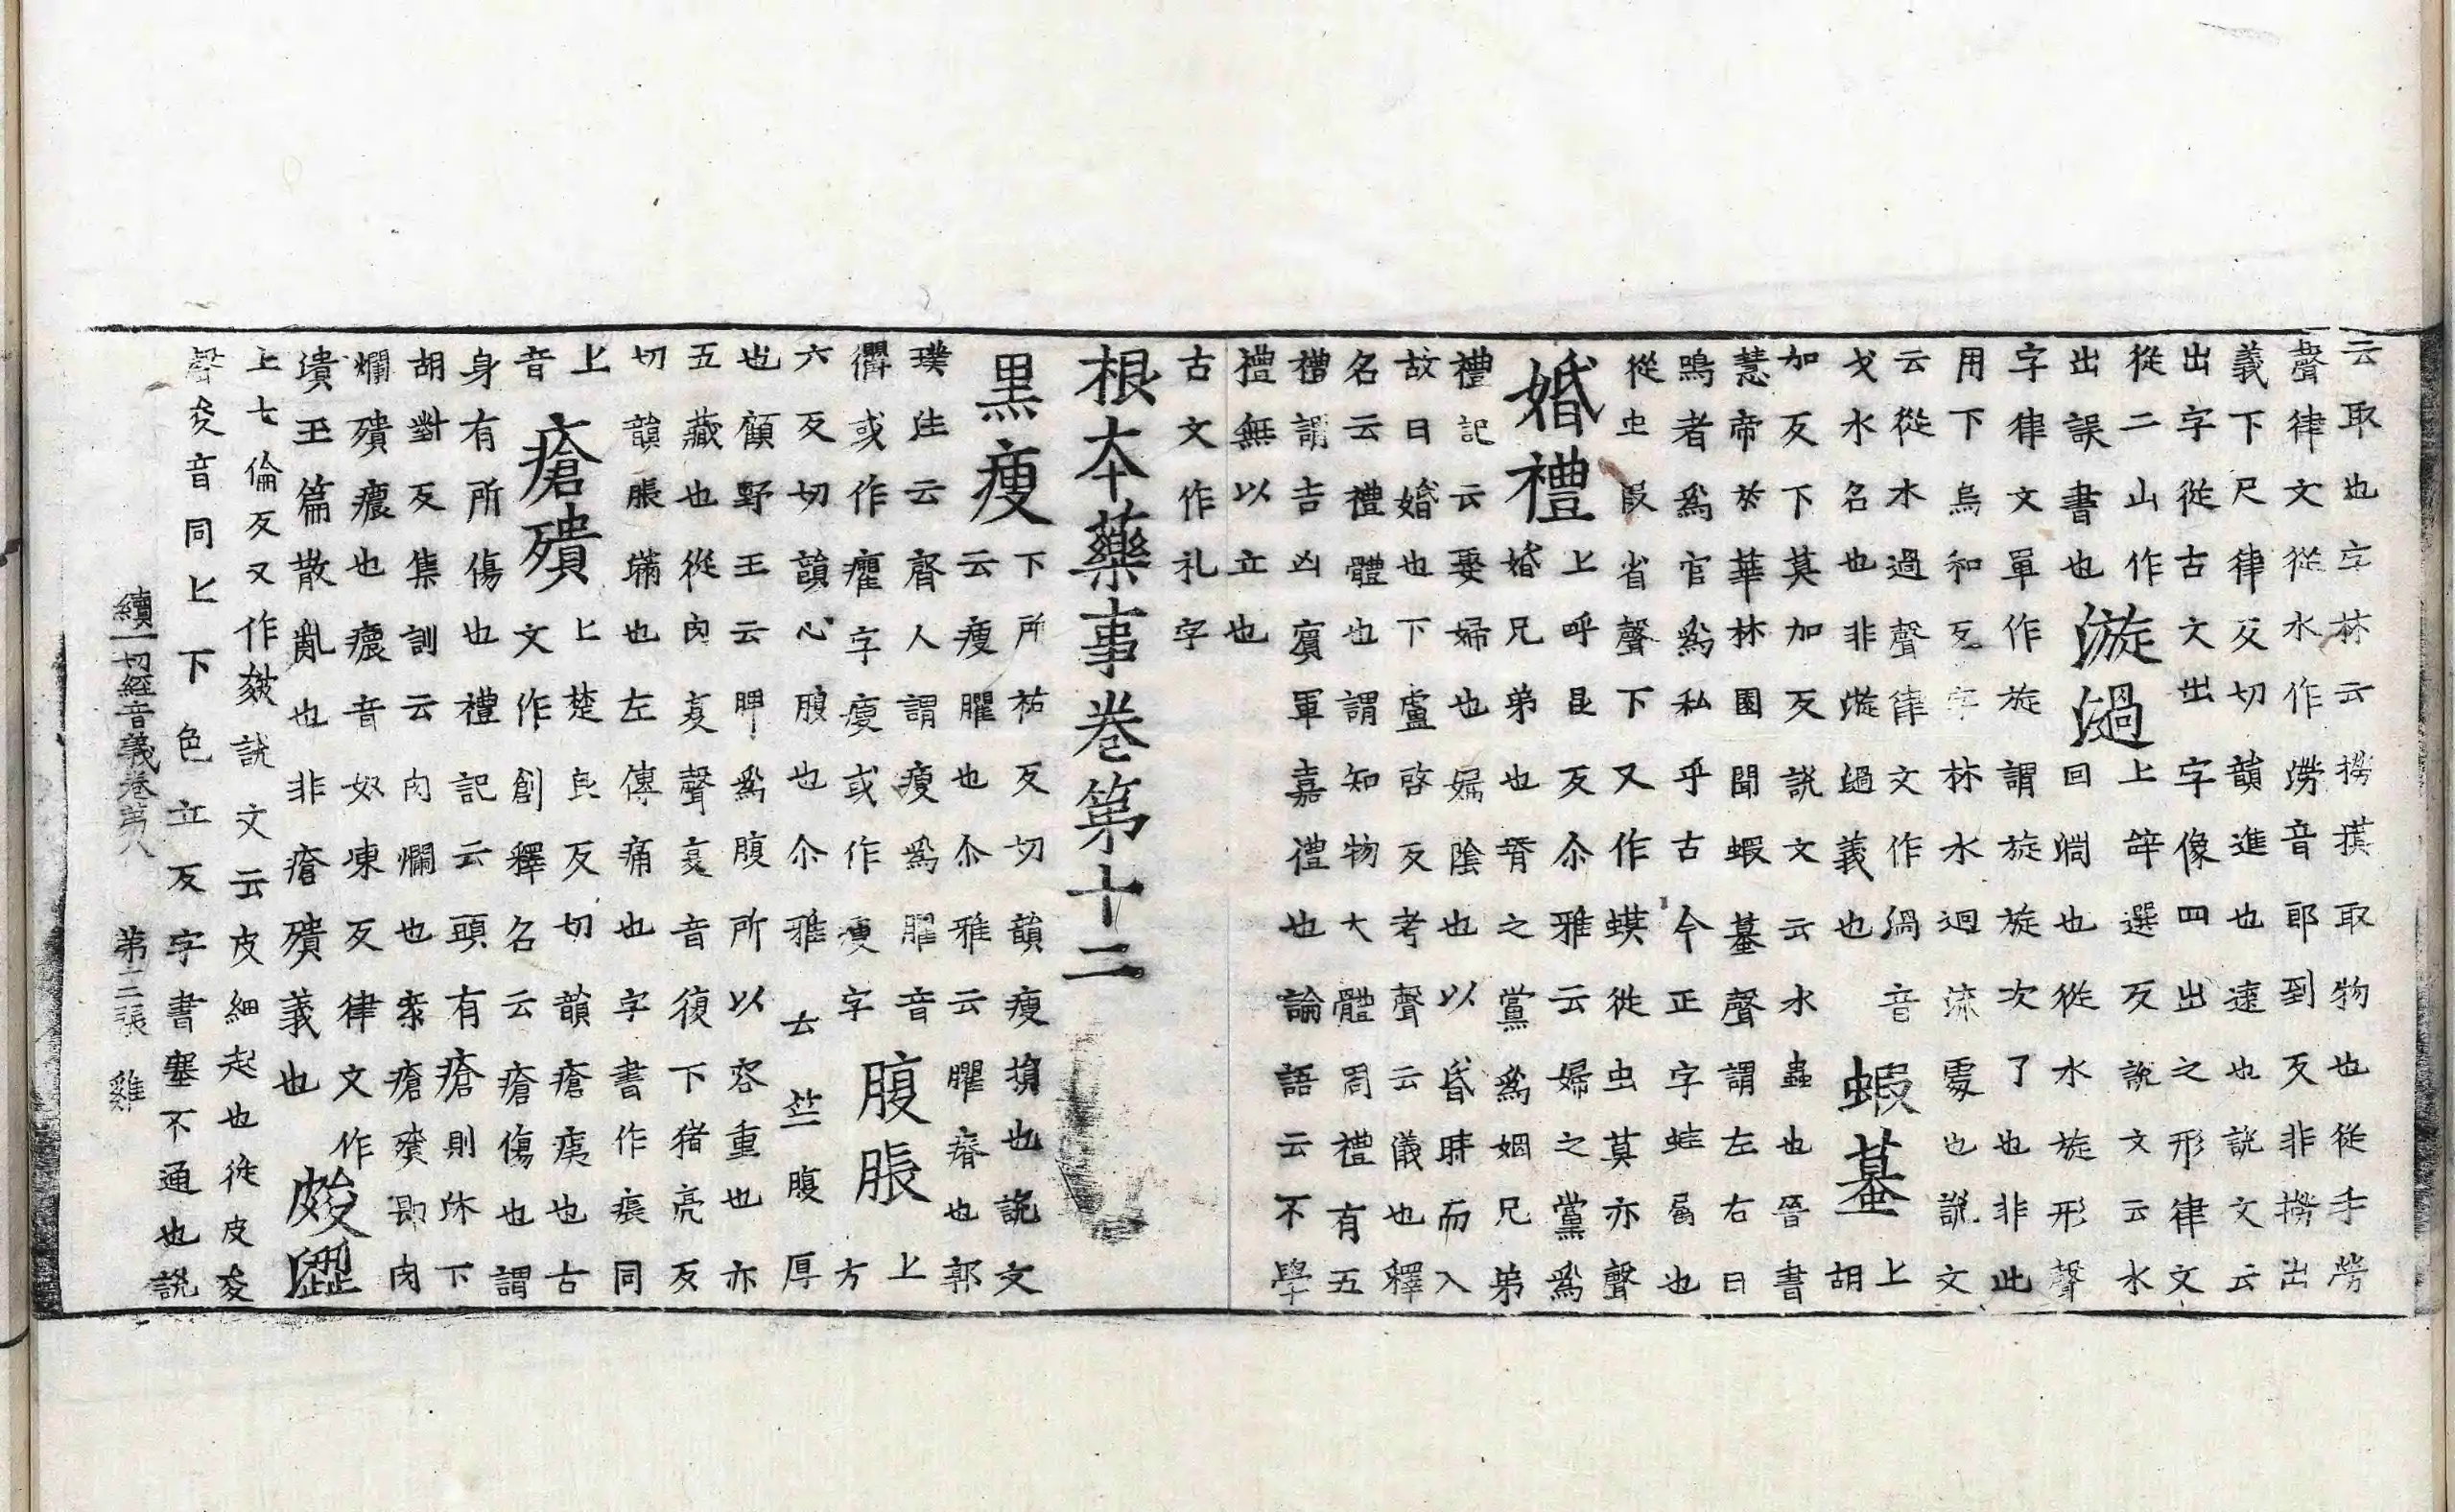 云取也字林云撈摸取物也從手勞
聲律文從水作澇音郎到反非撈出
義下尺律反切韻進也遠也説文云
出字從古文出字像四出之形律文
從二山作
出誤書也
漩濄
上辝選反説文云水
回淵也從水旋形聲
字律文單作旋謂旋旋次了也非此
用下烏和反字林水迴流處也説文
云從水過聲律文作渦音
戈水名也非漩過義也
蝦蟇
上
胡
加反下莫加反説文云水蟲也晉書
慧帝於華林園聞蝦蟇聲謂左右曰
鳴者爲官爲私乎古今正字蛙屬也
從虫叚省聲下又作蟆從虫莫亦聲
婚禮
上呼昆反尒雅云婦之黨爲
婚兄弟也壻之黨爲姻兄弟
禮記云娶婦也婦陰也以昏時而入
故曰婚也下盧啓反考聲云儀也釋
名云禮體也謂知物大體周禮有五
禮謂吉凶賔軍嘉禮也論語云不學
禮無以立也
古文作礼字
根本藥事卷第十二
黒瘦
下所祐反切韻瘦損也説文
云瘦臞也尒雅云臞瘠也郭
璞注云齊人謂瘦爲臞音
衢或作癯字瘦或作瘦字
腹脹
上
方
六反切韻心腹也尒雅云竺腹厚
也顧野王云胛爲腹所以容重也亦
五藏也從肉复聲复音復下猪亮反
切韻脹滿也左傳痛也字書作痮同
上
音
瘡殨
上楚良反切韻瘡痍也古
文作創釋名云瘡傷也謂
身有所傷也禮記云頭有瘡則沐下
胡對反集訓云肉爛也衆瘡殨即肉
爛殨癑也癑音奴凍反律文作
潰玉篇散亂也非瘡殨義也
皴澀
上七倫反又作皴説文云皮細起也從皮夋
聲夋音同上下色立反字書壅不通也説
續一切經音義卷第八 第二張 雞